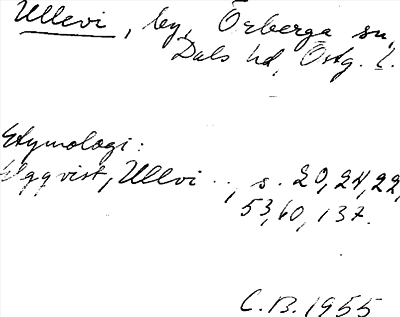 Ullevi, by, Örberga sn,
Dals hd, Östg. l.
Etymologi:
Elgqvist, Ullvi .., s. 20, 24, 22,
53, 60, 137.
C.B. 1955